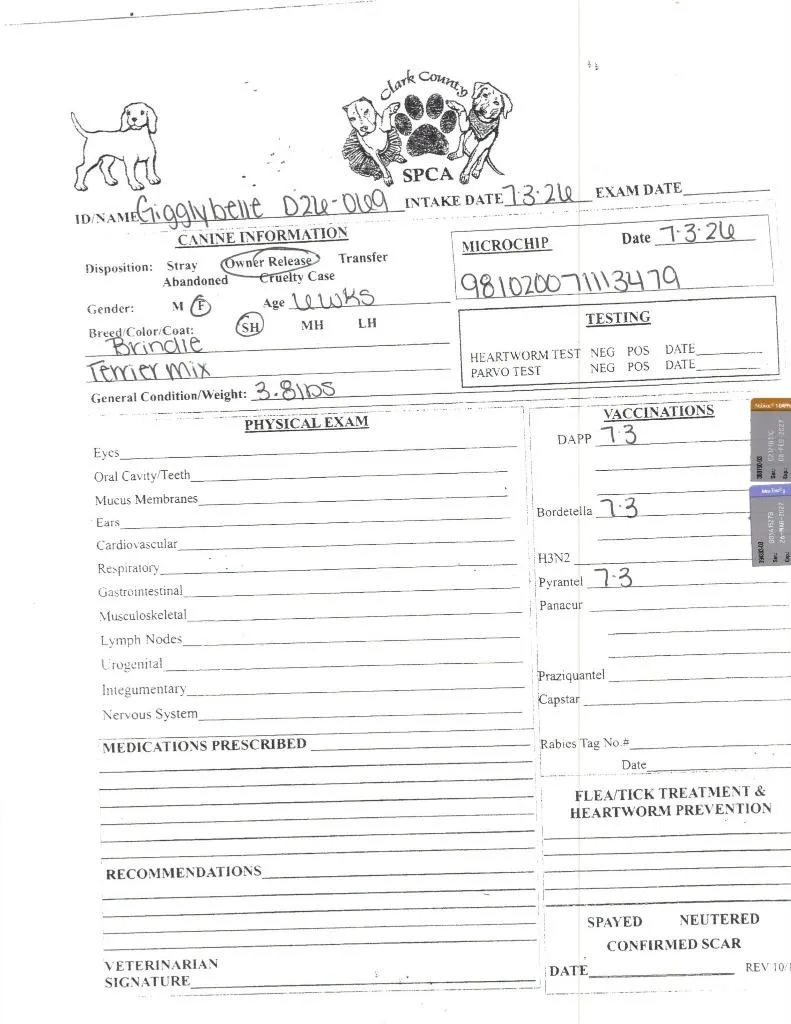 Clark County
SPCA
ID/NAME Gigglybelle D26-069 INTAKE DATE 7.3.26 EXAM DATE
CANINE INFORMATION
Disposition: Stray Owner Release Transfer
Abandoned Cruelty Case
Gender: M F Age 6 WKS
Breed/Color/Coat: SH MH LH
Brindle
Terrier mix
General Condition/Weight: 3.8 lbs
MICROCHIP Date 7.3.26
981020071113479
TESTING
HEARTWORM TEST NEG POS DATE
PARVO TEST NEG POS DATE
PHYSICAL EXAM
Eyes
Oral Cavity/Teeth
Mucus Membranes
Ears
Cardiovascular
Respiratory
Gastrointestinal
Musculoskeletal
Lymph Nodes
Urogenital
Integumentary
Nervous System
MEDICATIONS PRESCRIBED
RECOMMENDATIONS
VETERINARIAN
SIGNATURE
VACCINATIONS
DAPP 7.3
Bordetella 7.3
H3N2
Pyrantel 7.3
Panacur
Praziquantel
Capstar
Rabies Tag No.#
Date
FLEA/TICK TREATMENT &
HEARTWORM PREVENTION
SPAYED NEUTERED
CONFIRMED SCAR
DATE REV 10/